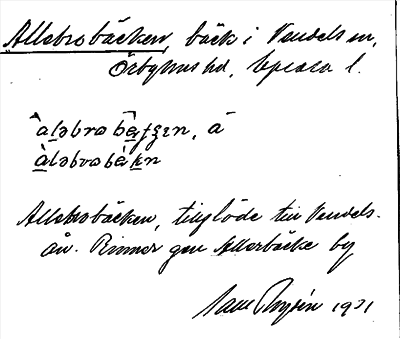 Allebrobäcken, bäck i Vendels sn,
Örbyhus hd, Uppsala l.
aləbrobäʈʂen, å
àləbrobäkn
Allebrobäcken, tillflöde till Vendels-
ån. Rinner gm Allerbäcke by
1931